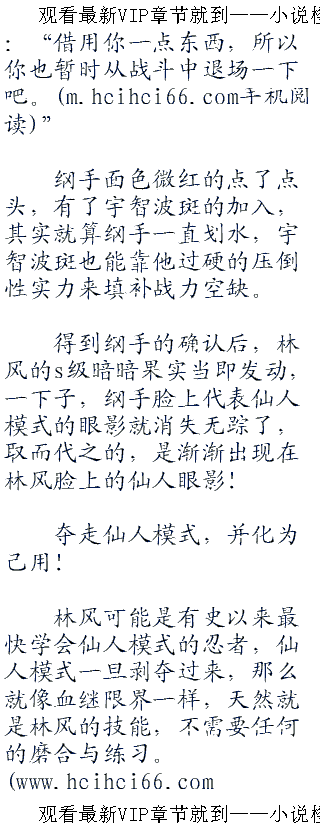 观看最新VIP章节就到——小说
：“借用你一点东西，所以
你也暂时从战斗中退场一下
吧。(m.hcihci66.com手机阅
读)”
纲手面色微红的点了点
头，有了宇智波斑的加入，
其实就算纲手一直划水，宇
智波斑也能靠他过硬的压倒
性实力来填补战力空缺。
得到纲手的确认后，林
风的s级暗暗果实当即发动，
一下子，纲手脸上代表仙人
模式的眼影就消失无踪了，
取而代之的，是渐渐出现在
林风脸上的仙人眼影！
夺走仙人模式，并化为
己用！
林风可能是有史以来最
快学会仙人模式的忍者，仙
人模式一旦剥夺过来，那么
就像血继限界一样，天然就
是林风的技能，不需要任何
的磨合与练习。
(www.hcihci66.com
观看最新VIP章节就到——小说